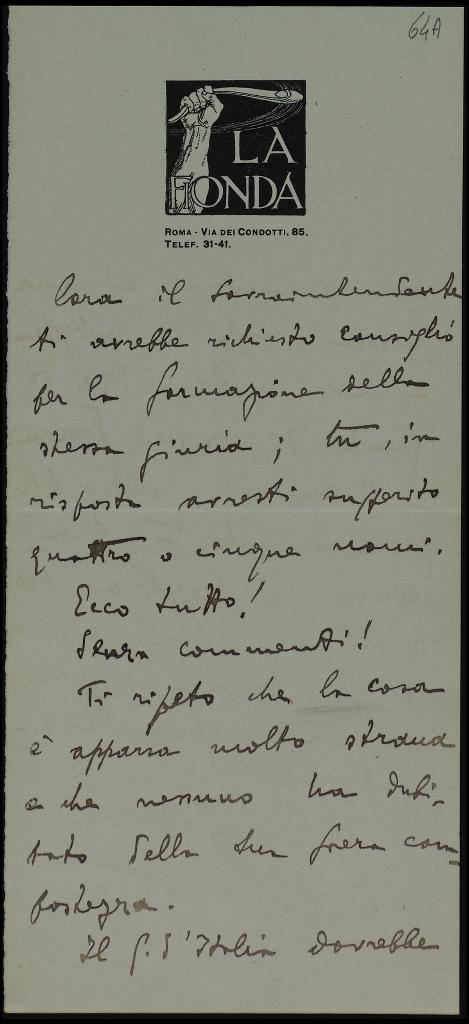 64A
LA
FIONDA
ROMA - VIA DEI CONDOTTI, 85.
TELEF. 31-41.
lora il sovraintendente
ti avrebbe richiesto consiglio
per la formazione della
stessa giuria; tu, in
risposta avresti suggerito
quattro o cinque nomi.
Ecco tutto!
Senza commenti!
Ti ripeto che la cosa
è apparsa molto strana
e che nessuno ha dubi-
tato della tua fiera com-
postezza.
Il G. d'Italia dovrebbe